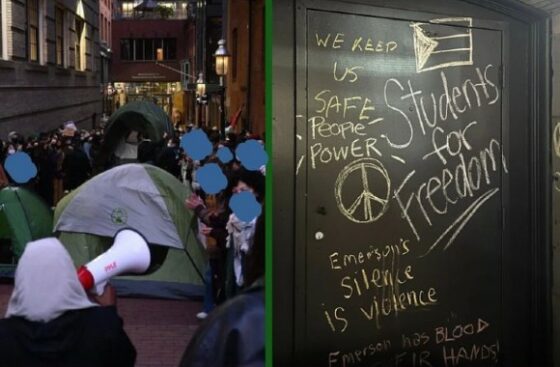 PYLE
WE KEEP
US
SAFE
PEOPLE
POWER
Students
for
Freedom
Emerson's
silence
is violence
Emerson has BLOOD
EIR HANDS!